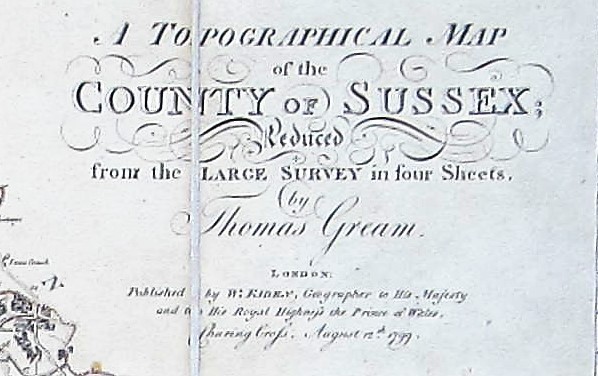 A TOPOGRAPHICAL MAP
of the
COUNTY OF SUSSEX;
Reduced
from the LARGE SURVEY in four Sheets,
by
Thomas Gream.
LONDON:
Published by Wm. FADEN, Geographer to His Majesty
and to His Royal Highneſs the Prince of Wales,
Charing Croſs, August 12th. 1799.